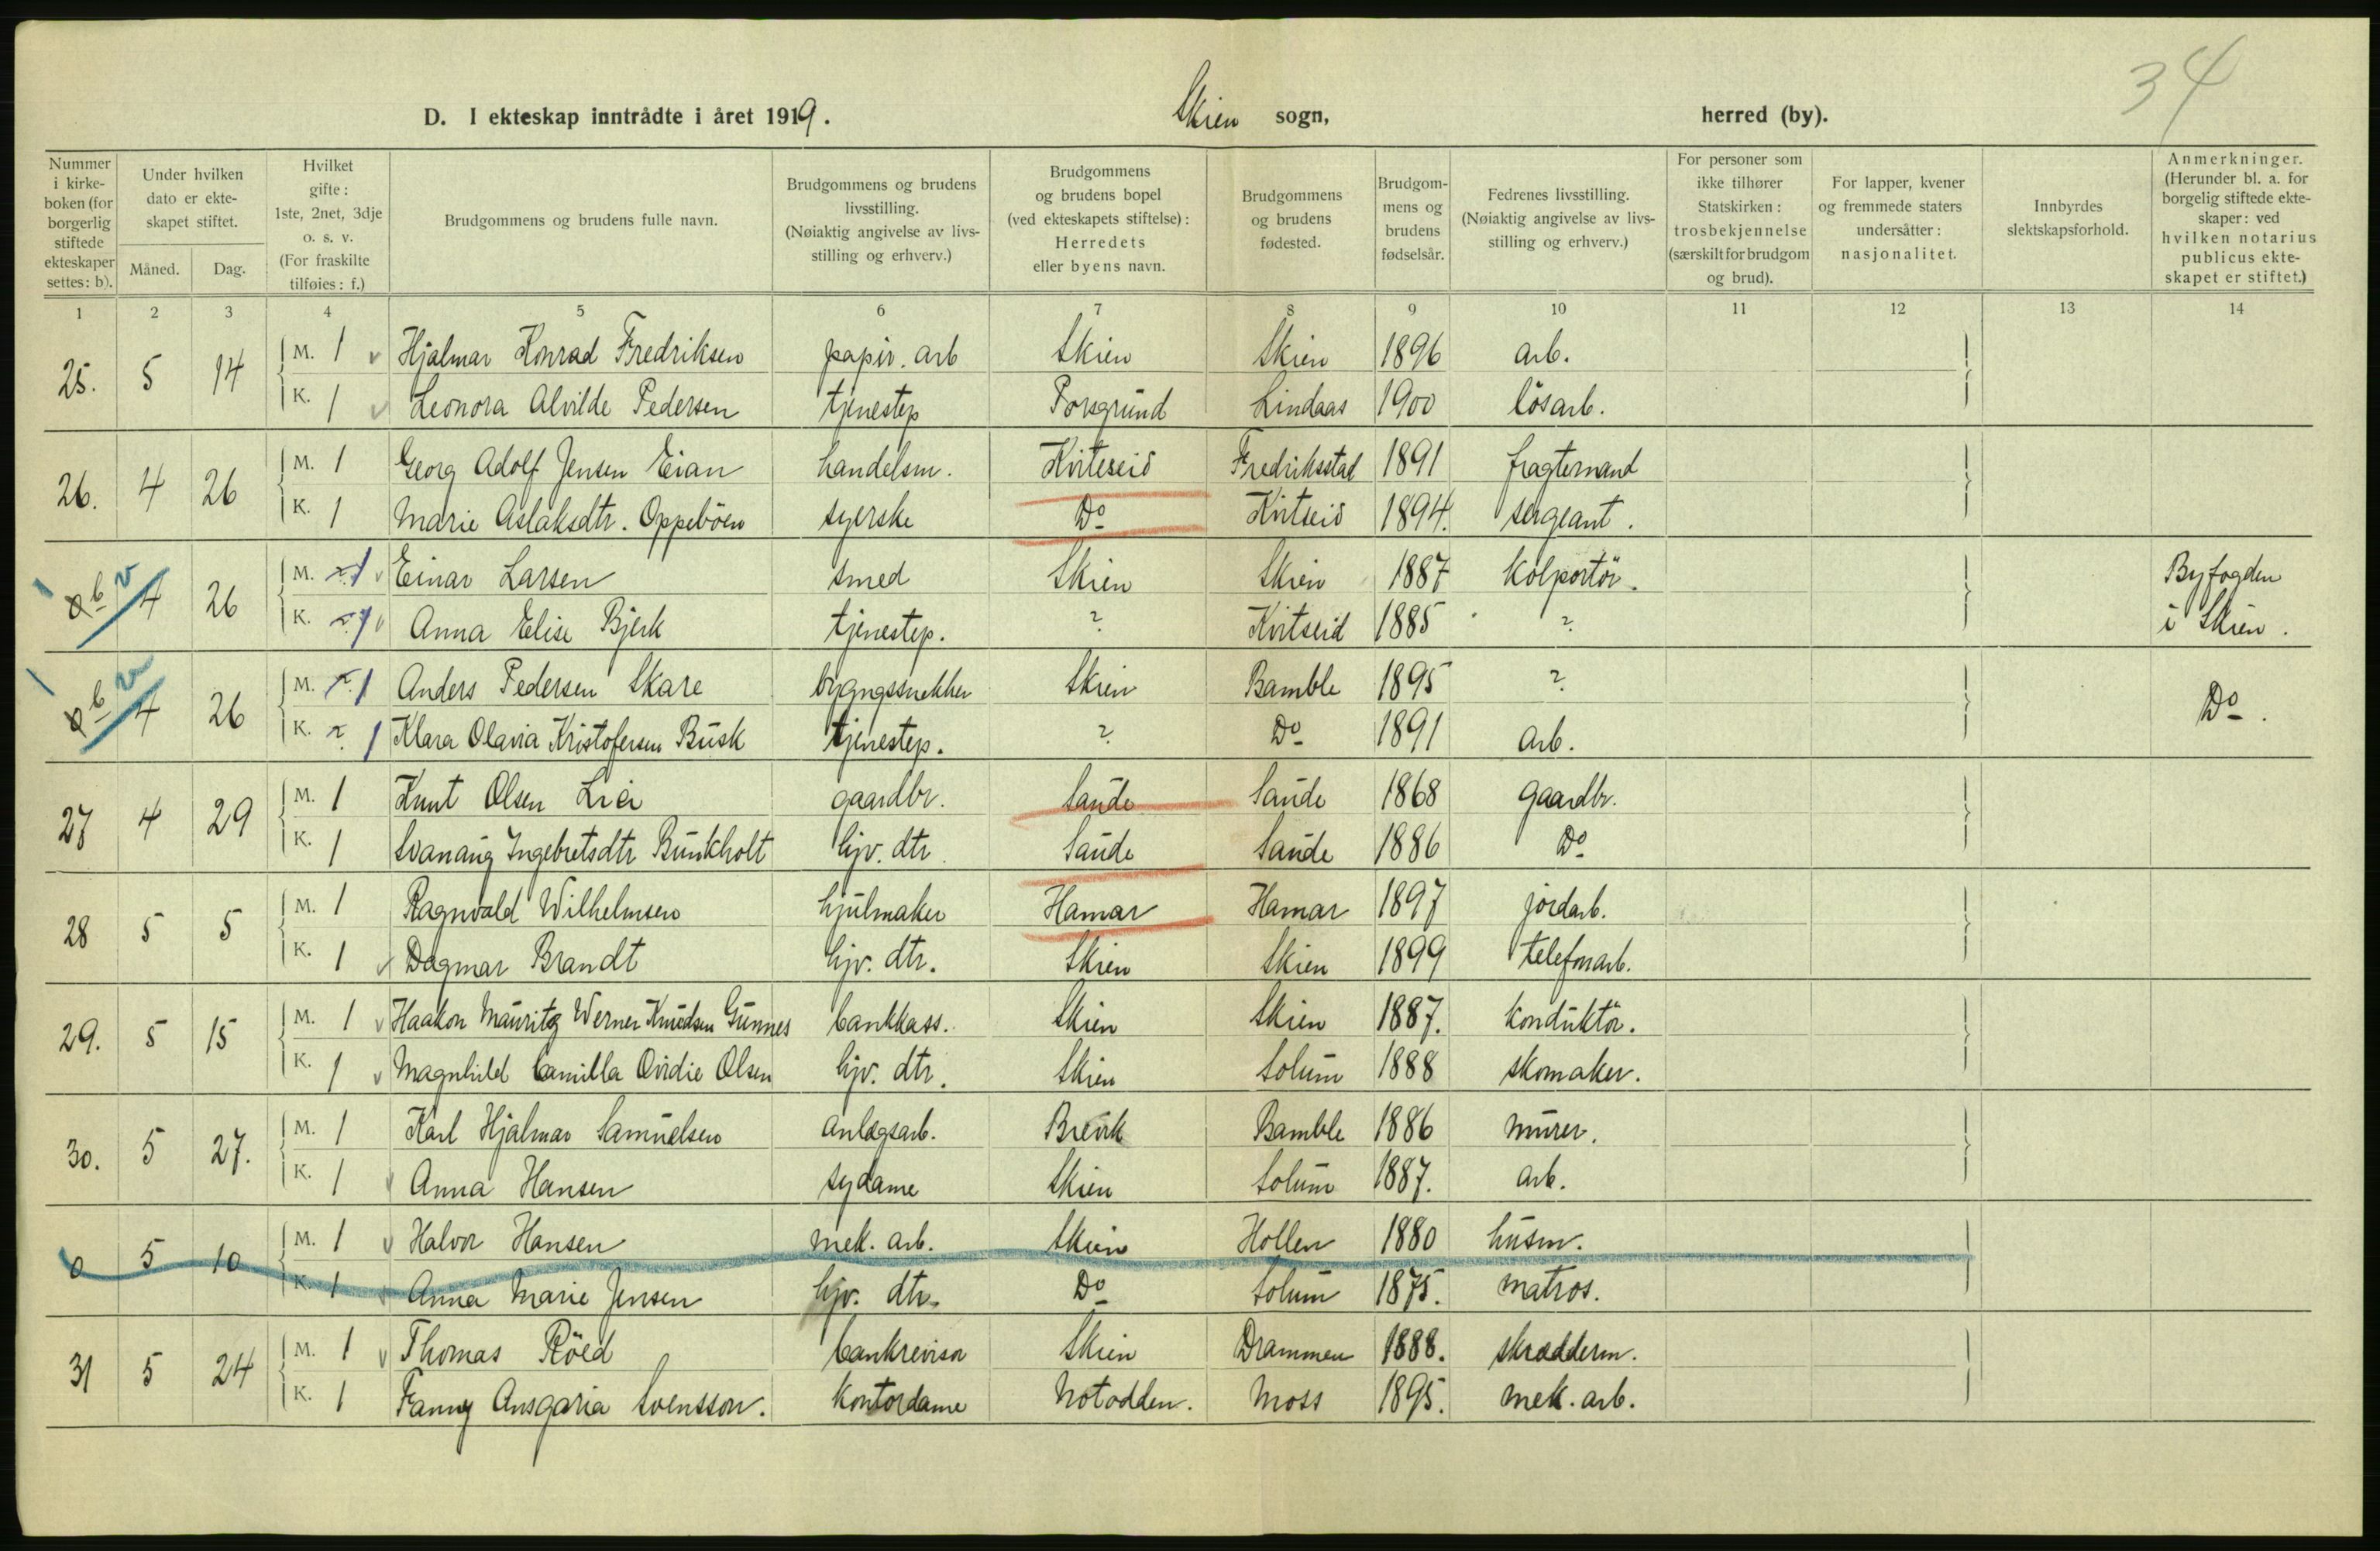 34
D. I ekteskap inntrådte i året 1919. Skien sogn, herred (by).
Nummer i kirkeboken (for borgerlig stiftede ekteskaper settes: b).
Under hvilken dato er ekteskapet stiftet.
Måned. Dag.
Hvilket gifte: 1ste, 2net, 3dje o. s. v. (For fraskilte tilføies: f.)
Brudgommens og brudens fulle navn.
Brudgommens og brudens livsstilling. (Nøiaktig angivelse av livsstilling og erhverv.)
Brudgommens og brudens bopel (ved ekteskapets stiftelse): Herredets eller byens navn.
Brudgommens og brudens fødested.
Brudgommens og brudens fødselsår.
Fedrenes livsstilling. (Nøiaktig angivelse av livsstilling og erhverv.)
For personer som ikke tilhører Statskirken: trosbekjennelse (særskilt for brudgom og brud).
For lapper, kvener og fremmede staters undersåtter: nasjonalitet.
Innbyrdes slektskapsforhold.
Anmerkninger. (Herunder bl. a. for borgelig stiftede ekteskaper: ved hvilken notarius publicus ekteskapet er stiftet.)
1 2 3 4 5 6 7 8 9 10 11 12 13 14
25. 5 14 M. 1 Hjalmar Konrad Fredriksen papir. arb Skien Skien 1896 arb.
K. 1 Leonora Alvilde Pedersen tjenestep Porsgrund Lindaas 1900 lösarb.
26. 4 26 M. 1 Georg Adolf Jensen Eian handelsm. Kviteseid Fredriksstad 1891 fragtemand
K. 1 Marie Aslaksdtr. Oppeböen syerske Do Kvitseid 1894. sergeant.
b 4 26 M. ? 1 Einar Larsen smed Skien Skien 1887 Kolportör. Byfogden
K. ? 1 Anna Elise Bjerk tjenestep. ? Kvitseid 1885 ? i Skien.
b 4 26 M. ? 1 Anders Pedersen Skare bygngssnekker Skien Bamble 1895 ? Do.
K. ? 1 Klara Olavia Kristofersen Busk tjenestep. ? Do 1891 Arb.
27 4 29 M. 1 Knut Olsen Lia gaardbr. Saude Saude 1868 Gaardbr.
K. 1 Svanaug Ingebretsdtr Bunkholt hjv. dtr. Saude Saude 1886 Do
28 5 5 M. 1 Ragnvald Wilhelmsen hjulmaker Hamar Hamar 1897 jordarb.
K. 1 Dagmar Brandt hjv. dtr. Skien Skien 1899 telefonarb.
29. 5 15 M. 1 Haakon Mauritz Werner Knudsen Gunnes bankkass. Skien Skien 1887. Konduktör.
K. 1 Magnhild Camilla Ovidie Olsen hjv. dtr. Skien Solum 1888 skomaker.
30. 5 27. M. 1 Karl Hjalmar Samuelsen anlægsarb. Brevik Bamble 1886 murer.
K. 1 Anna Hansen sydame Skien Solum 1887. arb.
0 5 10 M. 1 Halvor Hansen mek. arb. Skien Hollen 1880 husm.
K. 1 Anna Marie Jensen hjv. dtr. Do Solum 1875. matros.
31 5 24 M. 1 Thomas Röed bankrevisor Skien Drammen 1888. skrædderm.
K. 1 Fanny Ansgaria Svensson. Kontordame Notodden. Moss 1895. mek. arb.